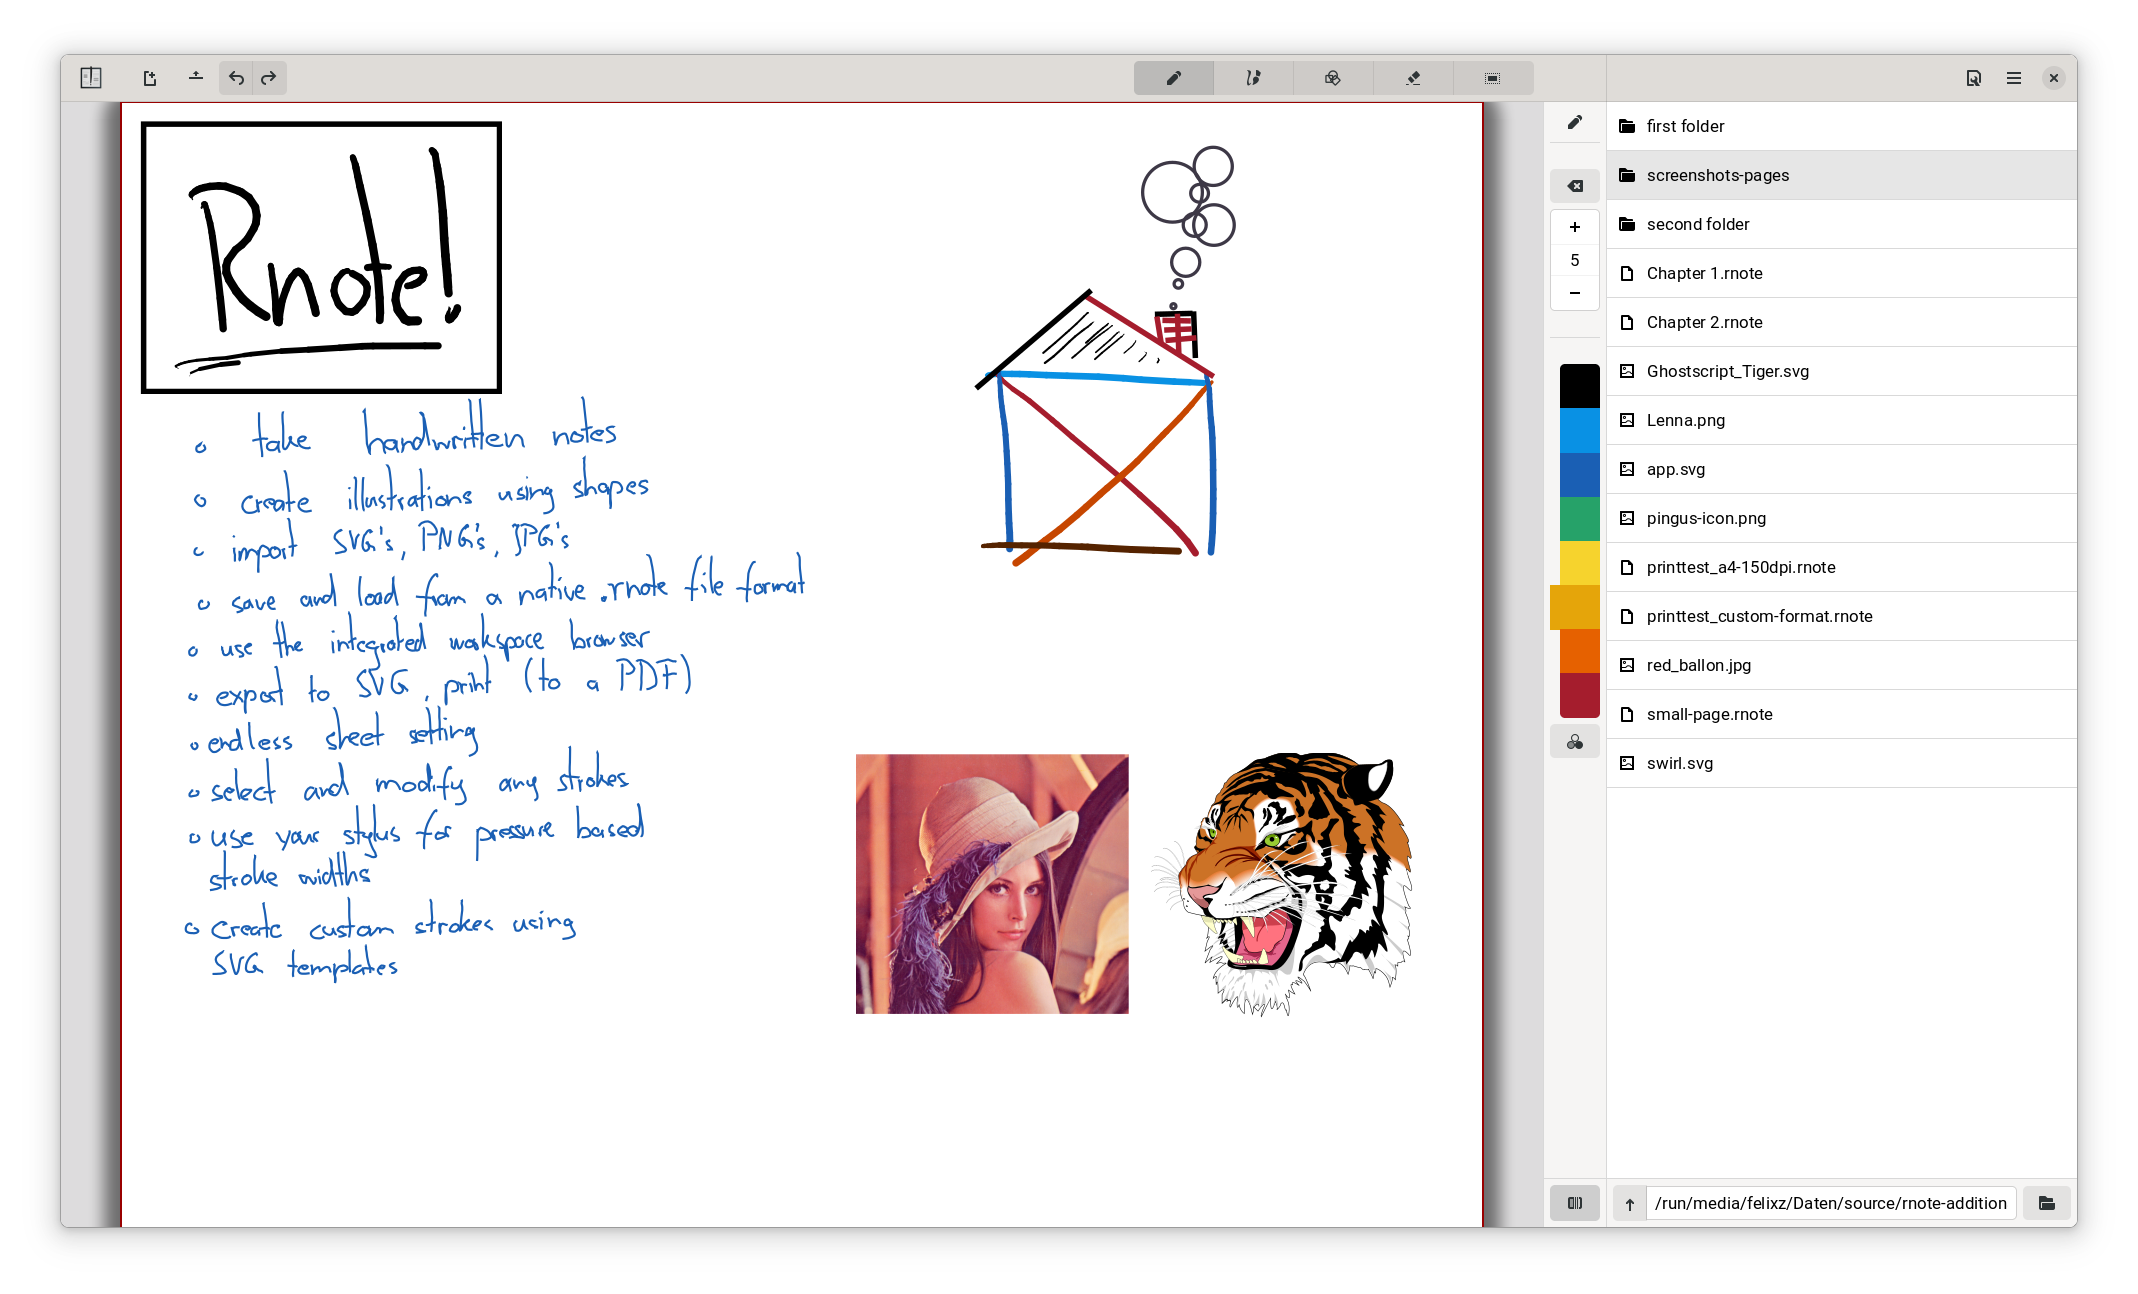 Rnote!
o take handwritten notes
o create illustrations using shapes
o import SVG's, PNG's, JPG's
o save and load from a native .rnote file format
o use the integrated workspace browser
o export to SVG, print (to a PDF)
o endless sheet setting
o select and modify any strokes
o use your stylus for pressure based
stroke widths
o Create custom strokes using
SVG templates
+
5
−
first folder
screenshots-pages
second folder
Chapter 1.rnote
Chapter 2.rnote
Ghostscript_Tiger.svg
Lenna.png
app.svg
pingus-icon.png
printtest_a4-150dpi.rnote
printtest_custom-format.rnote
red_ballon.jpg
small-page.rnote
swirl.svg
/run/media/felixz/Daten/source/rnote-addition